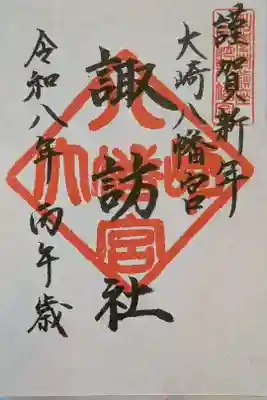 謹賀新年
大崎八幡宮
諏訪社
令和八年 丙午歳